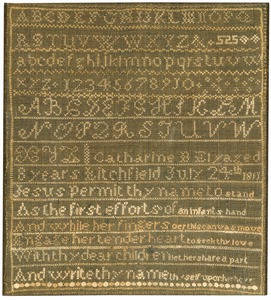 ABCDEFGHIJKLMNOPQ
RSTUVWXYZ
abcdefghijklmnopqrstuvw
xyz 1234567891
ABCDEFGHIKLM
NOPQRSTUVW
XYZ Catharine B
8 years Litchfield July 24th
Jesus permit thy name to stand
As the first efforts of an infants hand
And while her fingers oer this canvas move
Engage her tender heart to seek thy love
With thy dear children let her share a part
And write thy name thyself upon her heart